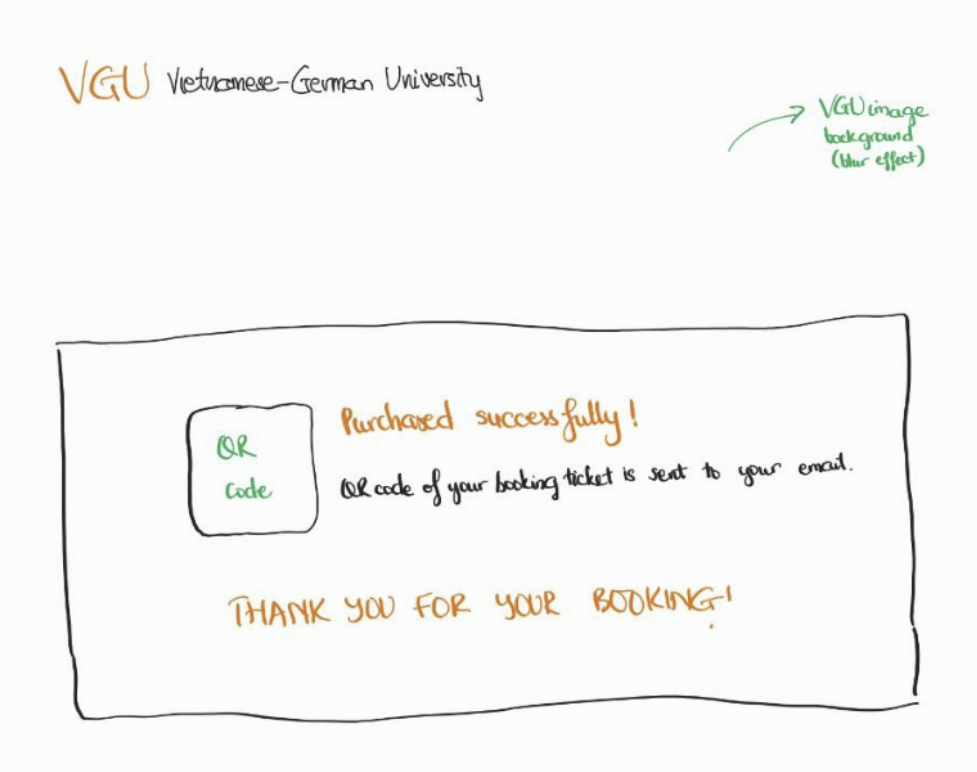 VGU Vietnamese-German University
VGU image
background
(blur effect)
QR
Code
Purchased successfully!
QR code of your booking ticket is sent to your email.
THANK YOU FOR YOUR BOOKING!